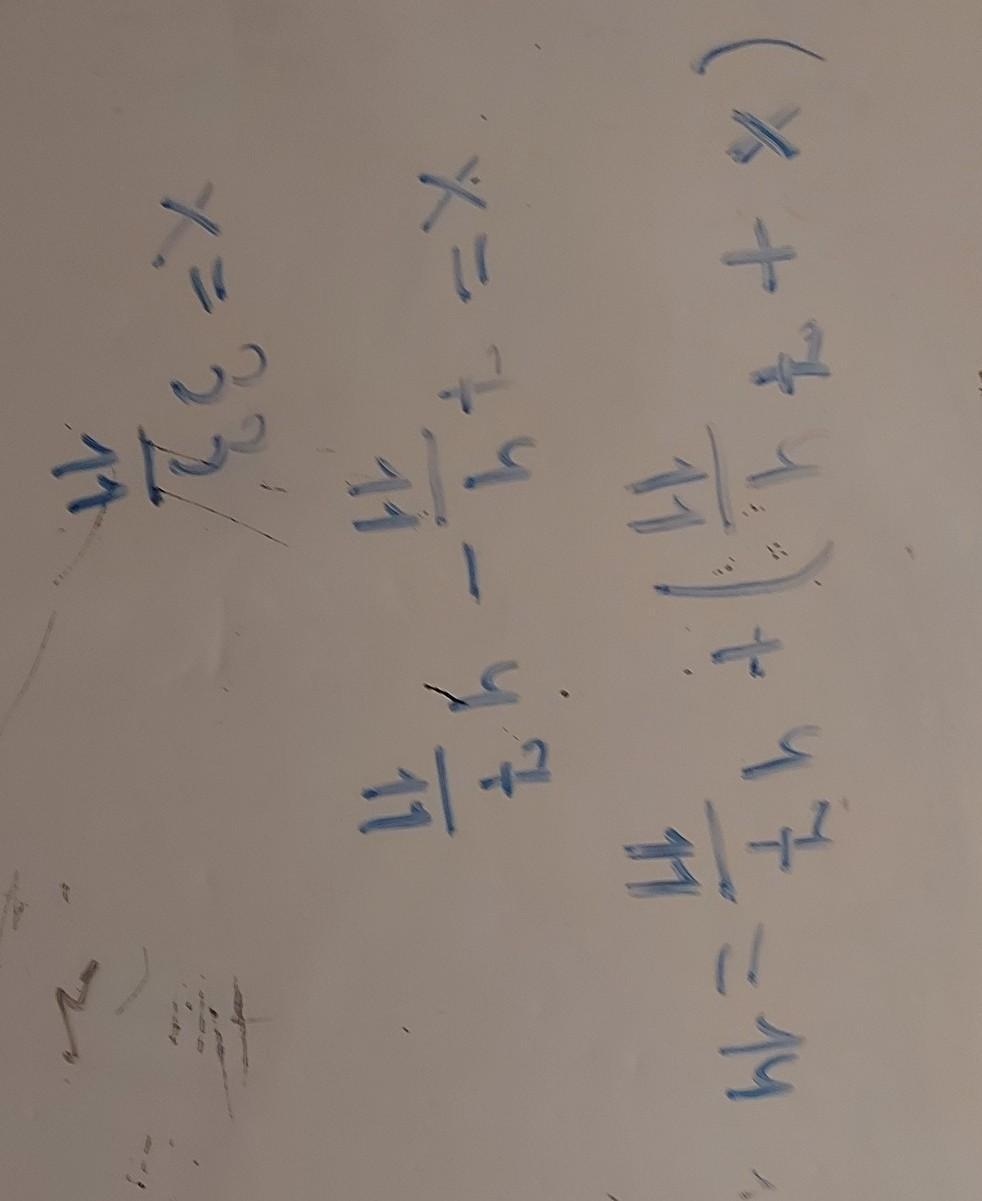 (x + 7 4/11) + 4 7/11 = 14
x = 7 4/11 - 4 7/11
x = 3 3/11